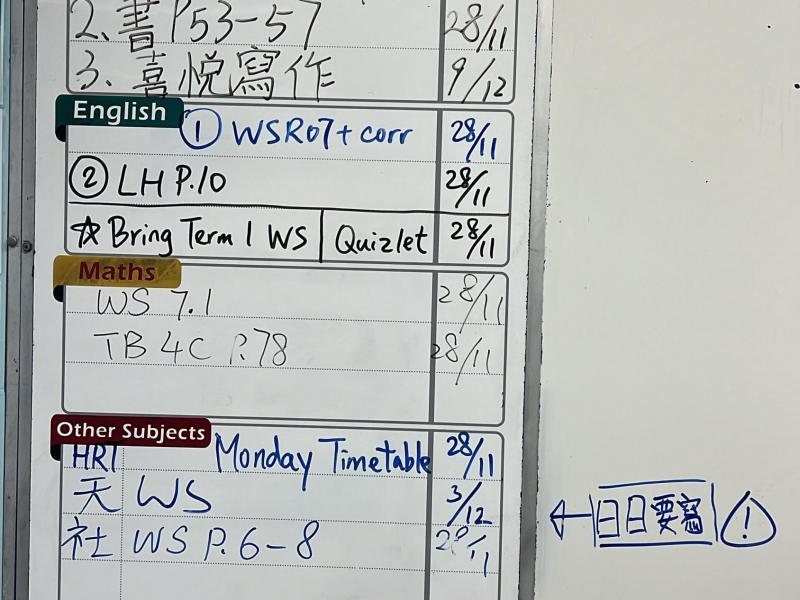 2. 書 P53-57 28/11
3. 喜悅寫作 9/12
English
① WSR07 + corr 28/11
② LH P.10 28/11
☆ Bring Term 1 WS | Quizlet 28/11
Maths
WS 7.1 28/11
TB 4C P.78 28/11
Other Subjects
HRT Monday Timetable 28/11
天 WS 3/12
社 WS P. 6-8 28/11
← 日日要寫 !